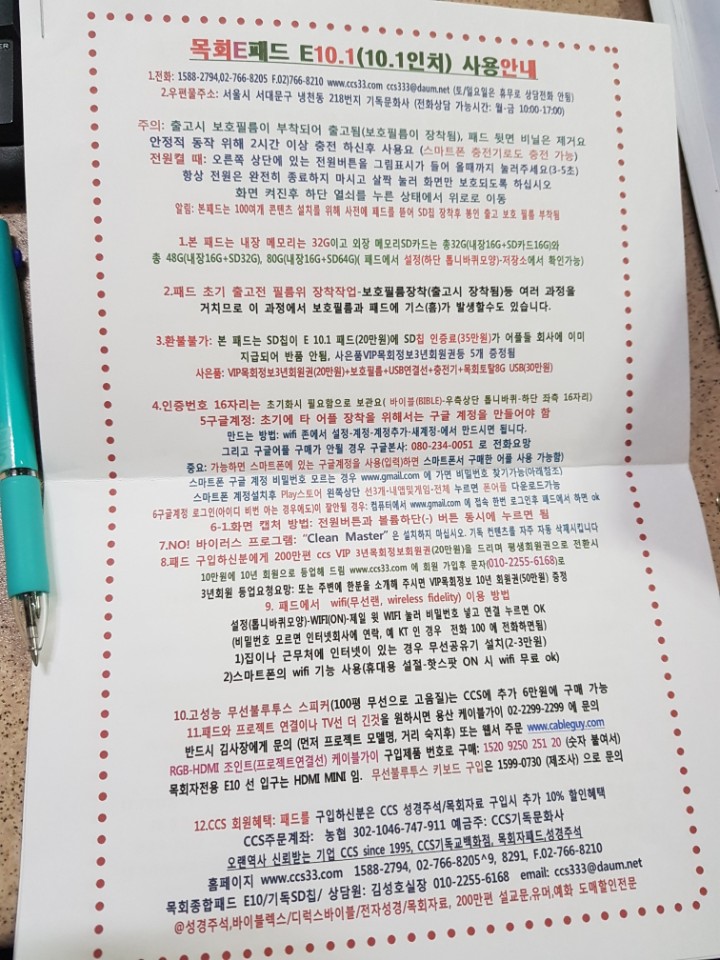 목회E패드 E10.1(10.1인치) 사용안내
1.전화: 1588-2794,02-766-8205 F.02)766-8210 www.ccs33.com ccs333@daum.net (토/일요일은 휴무로 상담전화 안됨)
2.우편물주소: 서울시 서대문구 냉천동 218번지 기독문화사 (전화상담 가능시간: 월-금 10:00-17:00)
주의: 출고시 보호필름이 부착되어 출고됨(보호필름이 장착됨), 패드 뒷면 비닐은 제거요
안정적 동작 위해 2시간 이상 충전 하신후 사용요 (스마트폰 충전기로도 충전 가능)
전원켤 때: 오른쪽 상단에 있는 전원버튼을 그림표시가 들어 올때까지 눌러주세요(3-5초)
항상 전원은 완전히 종료하지 마시고 살짝 눌러 화면만 보호되도록 하십시오
화면 켜진후 하단 열쇠를 누른 상태에서 위로로 이동
알림: 본패드는 100여개 콘텐츠 설치를 위해 사전에 패드를 뜯어 SD칩 장착후 봉인 출고 보호 필름 부착됨
1.본 패드는 내장 메모리는 32G이고 외장 메모리SD카드는 총32G(내장16G+SD카드16G)와
총 48G(내장16G+SD32G), 80G(내장16G+SD64G)( 패드에서 설정(하단 톱니바퀴모양)-저장소에서 확인가능)
2.패드 초기 출고전 필름위 장착작업-보호필름장착(출고시 장착됨)등 여러 과정을
거치므로 이 과정에서 보호필름과 패드에 기스(흠)가 발생할수도 있습니다.
3.환불불가: 본 패드는 SD칩이 E 10.1 패드(20만원)에 SD칩 인증료(35만원)가 어플들 회사에 이미
지급되어 반품 안됨, 사은품VIP목회정보3년회원권등 5개 증정됨
사은품: VIP목회정보3년회원권(20만원)+보호필름+USB연결선+충전기+목회토탈8G USB(30만원)
4.인증번호 16자리는 초기화시 필요함으로 보관요( 바이블(BIBLE)-우측상단 톱니바퀴-하단 좌측 16자리)
5구글계정: 초기에 타 어플 장착을 위해서는 구글 계정을 만들어야 함
만드는 방법: wifi 존에서 설정-계정-계정추가-새계정-에서 만드시면 됩니다.
그리고 구글어플 구매가 안될 경우 구글본사: 080-234-0051 로 전화요망
중요: 가능하면 스마트폰에 있는 구글계정을 사용(입력)하면 스마트폰서 구매한 어플 사용 가능함)
스마트폰 구글 계정 비밀번호 모르는 경우 www.gmail.com 에 가면 비밀번호 찾기가능(아래참조)
스마트폰 계정설치후 Play스토어 왼쪽상단 선3개-내앱및게임-전체 누르면 폰어플 다운로드가능
6구글계정 로그인(아이디 비번 아는 경우에도)이 잘안될 경우: 컴퓨터에서 www.gmail.com 에 접속 한번 로그인후 패드에서 하면 ok
6-1화면 캡처 방법: 전원버튼과 볼륨하단(-) 버튼 동시에 누르면 됨
7.NO! 바이러스 프로그램: "Clean Master" 은 설치하지 마십시오. 기독 컨텐츠를 자주 자동 삭제시킵니다
8.패드 구입하신분에게 200만편 ccs VIP 3년목회정보회원권(20만원)을 드리며 평생회원권으로 전환시
10만원에 10년 회원으로 등업해 드림 www.ccs33.com 에 회원 가입후 문자(010-2255-6168)로
3년회원 등업요청요망: 또는 주변에 한분을 소개해 주시면 VIP목회정보 10년 회원권(50만원) 증정
9. 패드에서 wifi(무선랜, wireless fidelity) 이용 방법
설정(톱니바퀴모양)-WIFI(ON)-제일 윗 WIFI 눌러 비밀번호 넣고 연결 누르면 OK
(비밀번호 모르면 인터넷회사에 연락, 예 KT 인 경우 전화 100 에 전화하면됨)
1)집이나 근무처에 인터넷이 있는 경우 무선공유기 설치(2-3만원)
2)스마트폰의 wifi 기능 사용(휴대용 설절-핫스팟 ON 시 wifi 무료 ok)
10.고성능 무선불루투스 스피커(100평 무선으로 고음질)는 CCS에 추가 6만원에 구매 가능
11.패드와 프로젝트 연결이나 TV선 더 긴것을 원하시면 용산 케이블가이 02-2299-2299 에 문의
반드시 김사장에게 문의 (먼저 프로젝트 모델명, 거리 숙지후) 또는 웹서 주문 www.cableguy.com
RGB-HDMI 조인트(프로젝트연결선) 케이블가이 구입제품 번호로 구매: 1520 9250 251 20 (숫자 붙여서)
목회자전용 E10 선 입구는 HDMI MINI 임. 무선불루투스 키보드 구입은 1599-0730 (제조사) 으로 문의
12.CCS 회원혜택: 패드를 구입하신분은 CCS 성경주석/목회자료 구입시 추가 10% 할인혜택
CCS주문계좌: 농협 302-1046-747-911 예금주: CCS기독문화사
오랜역사 신뢰받는 기업 CCS since 1995, CCS기독교백화점, 목회자패드,성경주석
홈페이지 www.ccs33.com 1588-2794, 02-766-8205^9, 8291, F.02-766-8210
목회종합패드 E10/기독SD칩/ 상담원: 김성호실장 010-2255-6168 email: ccs333@daum.net
@성경주석,바이블렉스/디럭스바이블/전자성경/목회자료, 200만편 설교문,유머,예화 도매할인전문